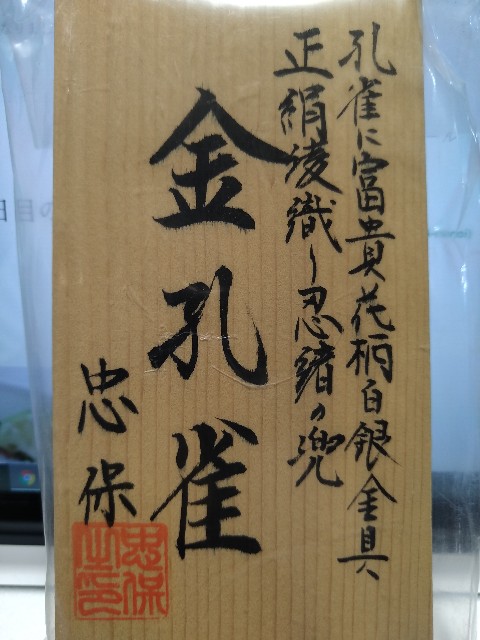 孔雀に富貴花柄白銀金具
正絹綾織り忍緒の兜
金孔雀
忠保
忠保之印